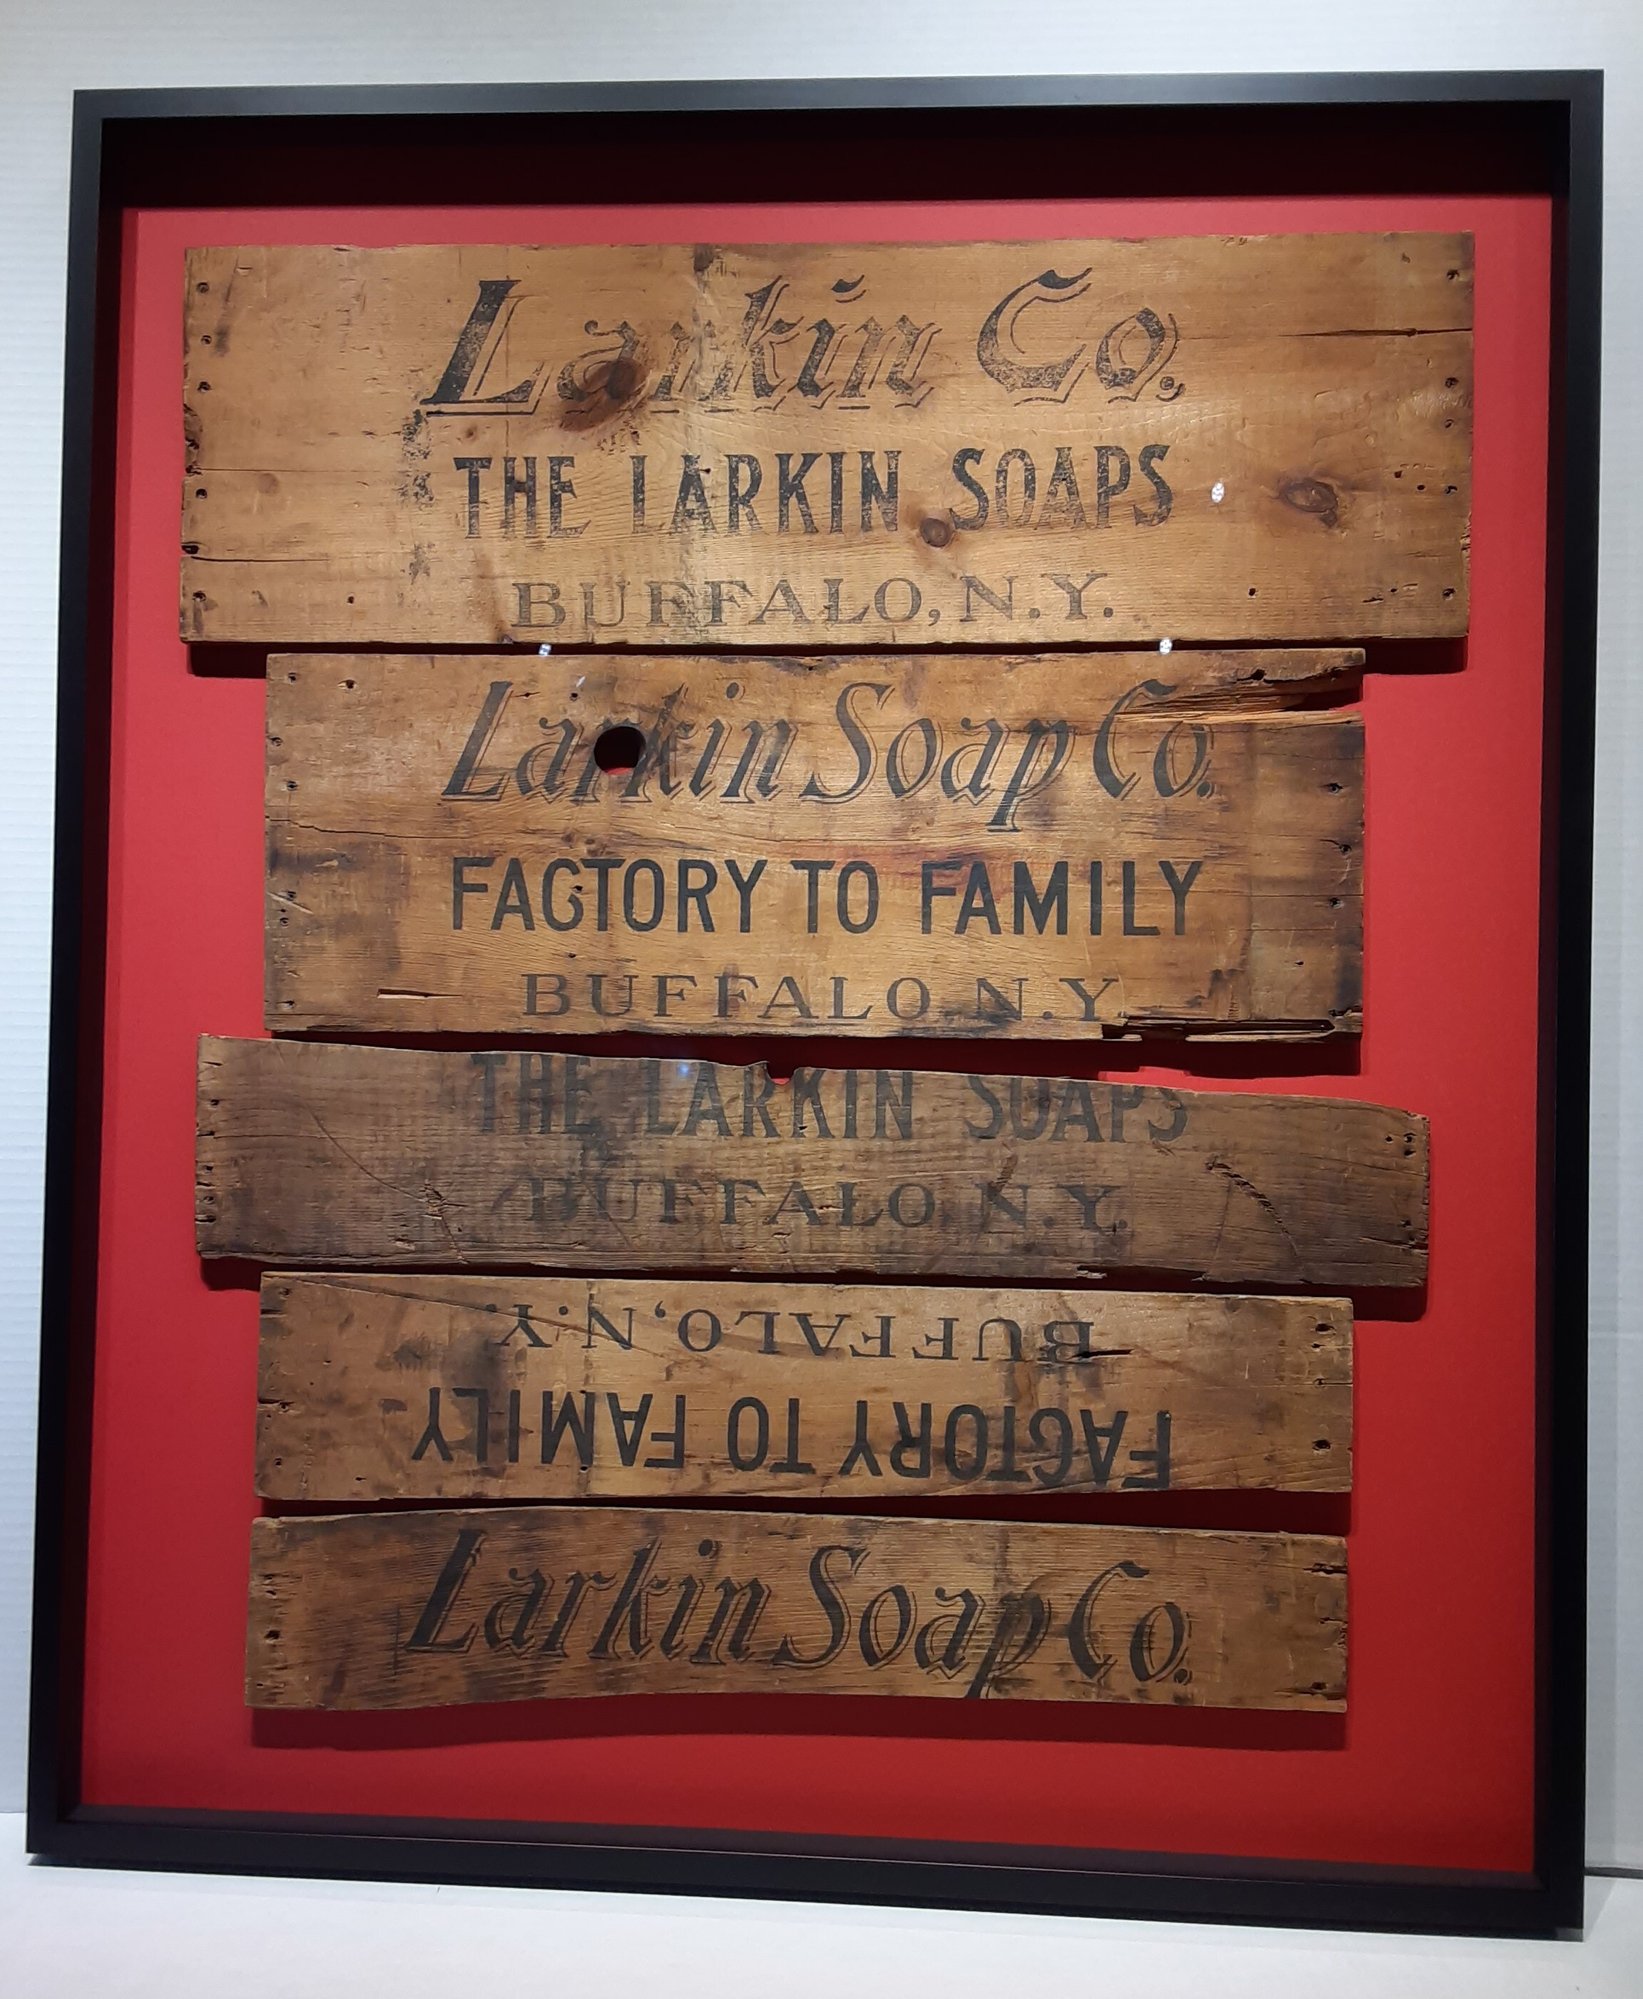 Larkin Co.
THE LARKIN SOAPS
BUFFALO, N.Y.
Larkin Soap Co.
FACTORY TO FAMILY
BUFFALO, N.Y.
THE LARKIN SOAPS
BUFFALO, N.Y.
BUFFALO, N.Y.
FACTORY TO FAMILY
Larkin Soap Co.